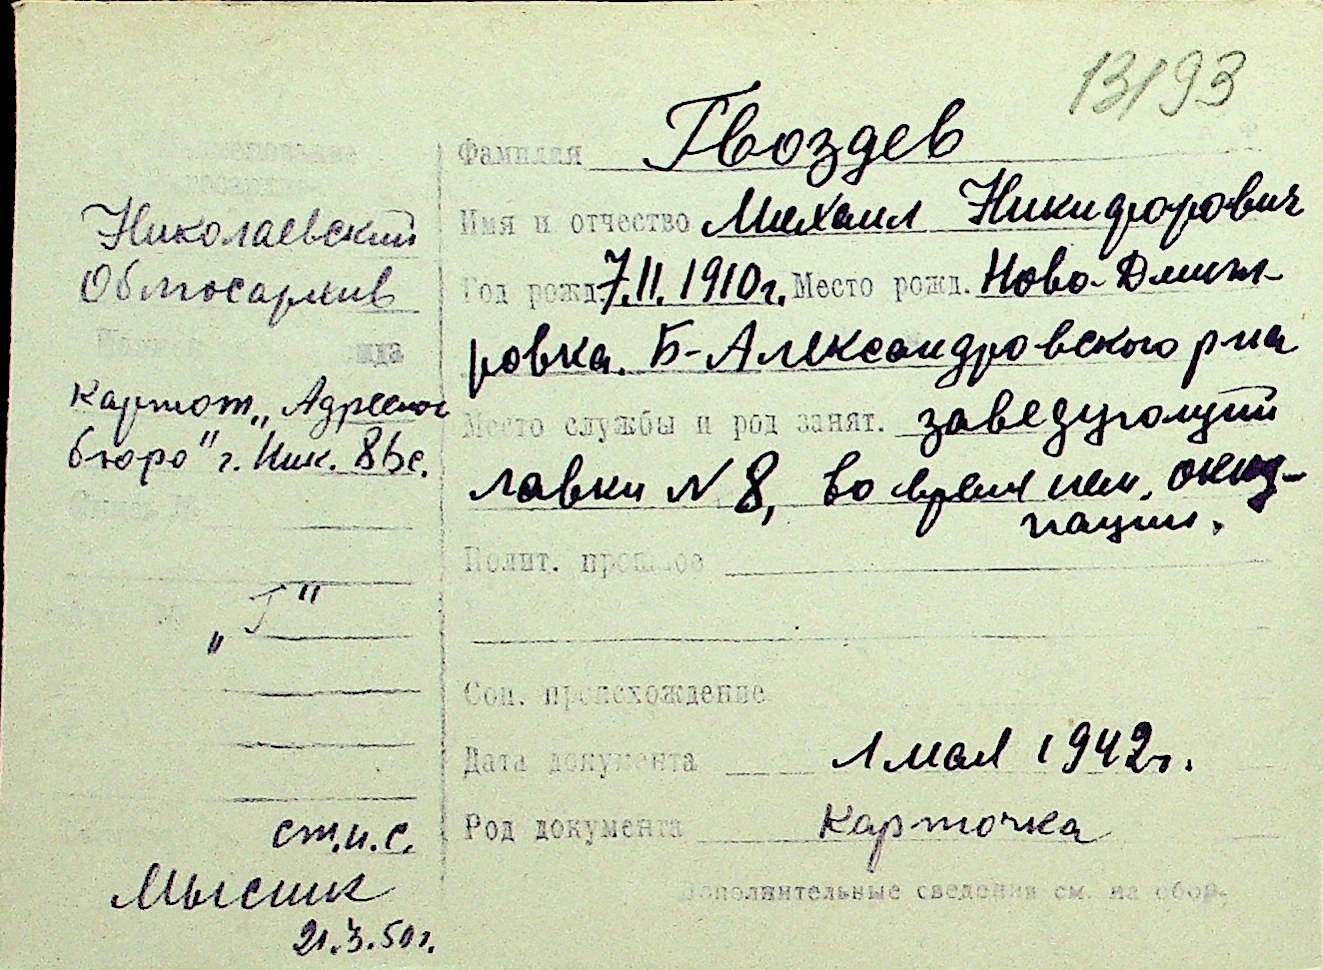 13193
Фамилия Гвоздев
Имя и отчество Михаил Никифорович
Год рожд. 7.II.1910г. Место рожд. Ново-Дмит-
ровка. Б-Александровского р-на
Место службы и род занят. заведующий
лавки N 8, во время нем. окку-
пации.
Полит. прошлое
Соц. происхождение
Дата документа 1 мая 1942г.
Род документа карточка
Дополнительные сведения см. на обор.
Николаевский
Облгосархив
картот. „Адресное
бюро" г. Ник.
„Г"
ст.н.с.
Мысик
21.3.50г.